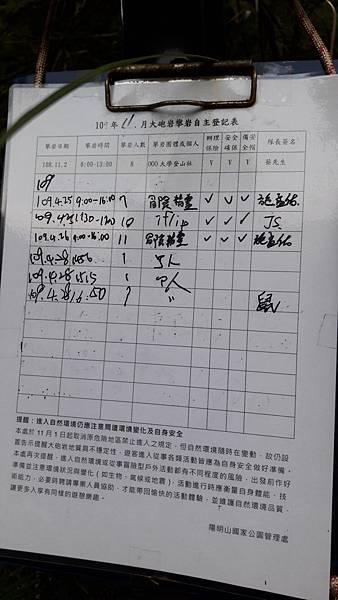 109年 4 月大砲岩攀岩自主登記表
攀岩日期 攀岩時間 攀岩人數 攀岩團體或個人 辦理保險 安全確保 備安全帽 隊長簽名
108.11.2 8:00-13:00 8 OOO大學登山社 V V V 蔡先生
109
109.4.25 9:00-16:00 7 冒險精靈 ✓ ✓ ✓
109.4.25 1130-1200 10 iflip ✓ ✓ ✓ JS
109.4.26 9:00-16:00 11 冒險精靈 ✓ ✓ ✓
109.4.28 1456 1 个人
109.4.28 1515 1 个人
109.4.28 16:50 〃
提醒：進入自然環境仍應注意周遭環境變化及自身安全
本處於11月1日起取消原危險地區禁止進入之規定，但自然環境隨時在變動，故仍設
置告示提醒大砲岩地質具不穩定性，遊客進入從事各類活動皆應為自身安全做好準備。
本處再次提醒，進入自然環境或從事冒險型戶外活動都有不同程度的風險，出發前作好
準備並注意環境狀況與變化（如生物、氣候或地震），活動進行時應衡量自身體能、技
術能力，必要時聘請專業人員協助，才能帶回愉快的活動體驗，並維護自然環境品質，
讓更多人享有同樣的遊憩樂趣。
陽明山國家公園管理處